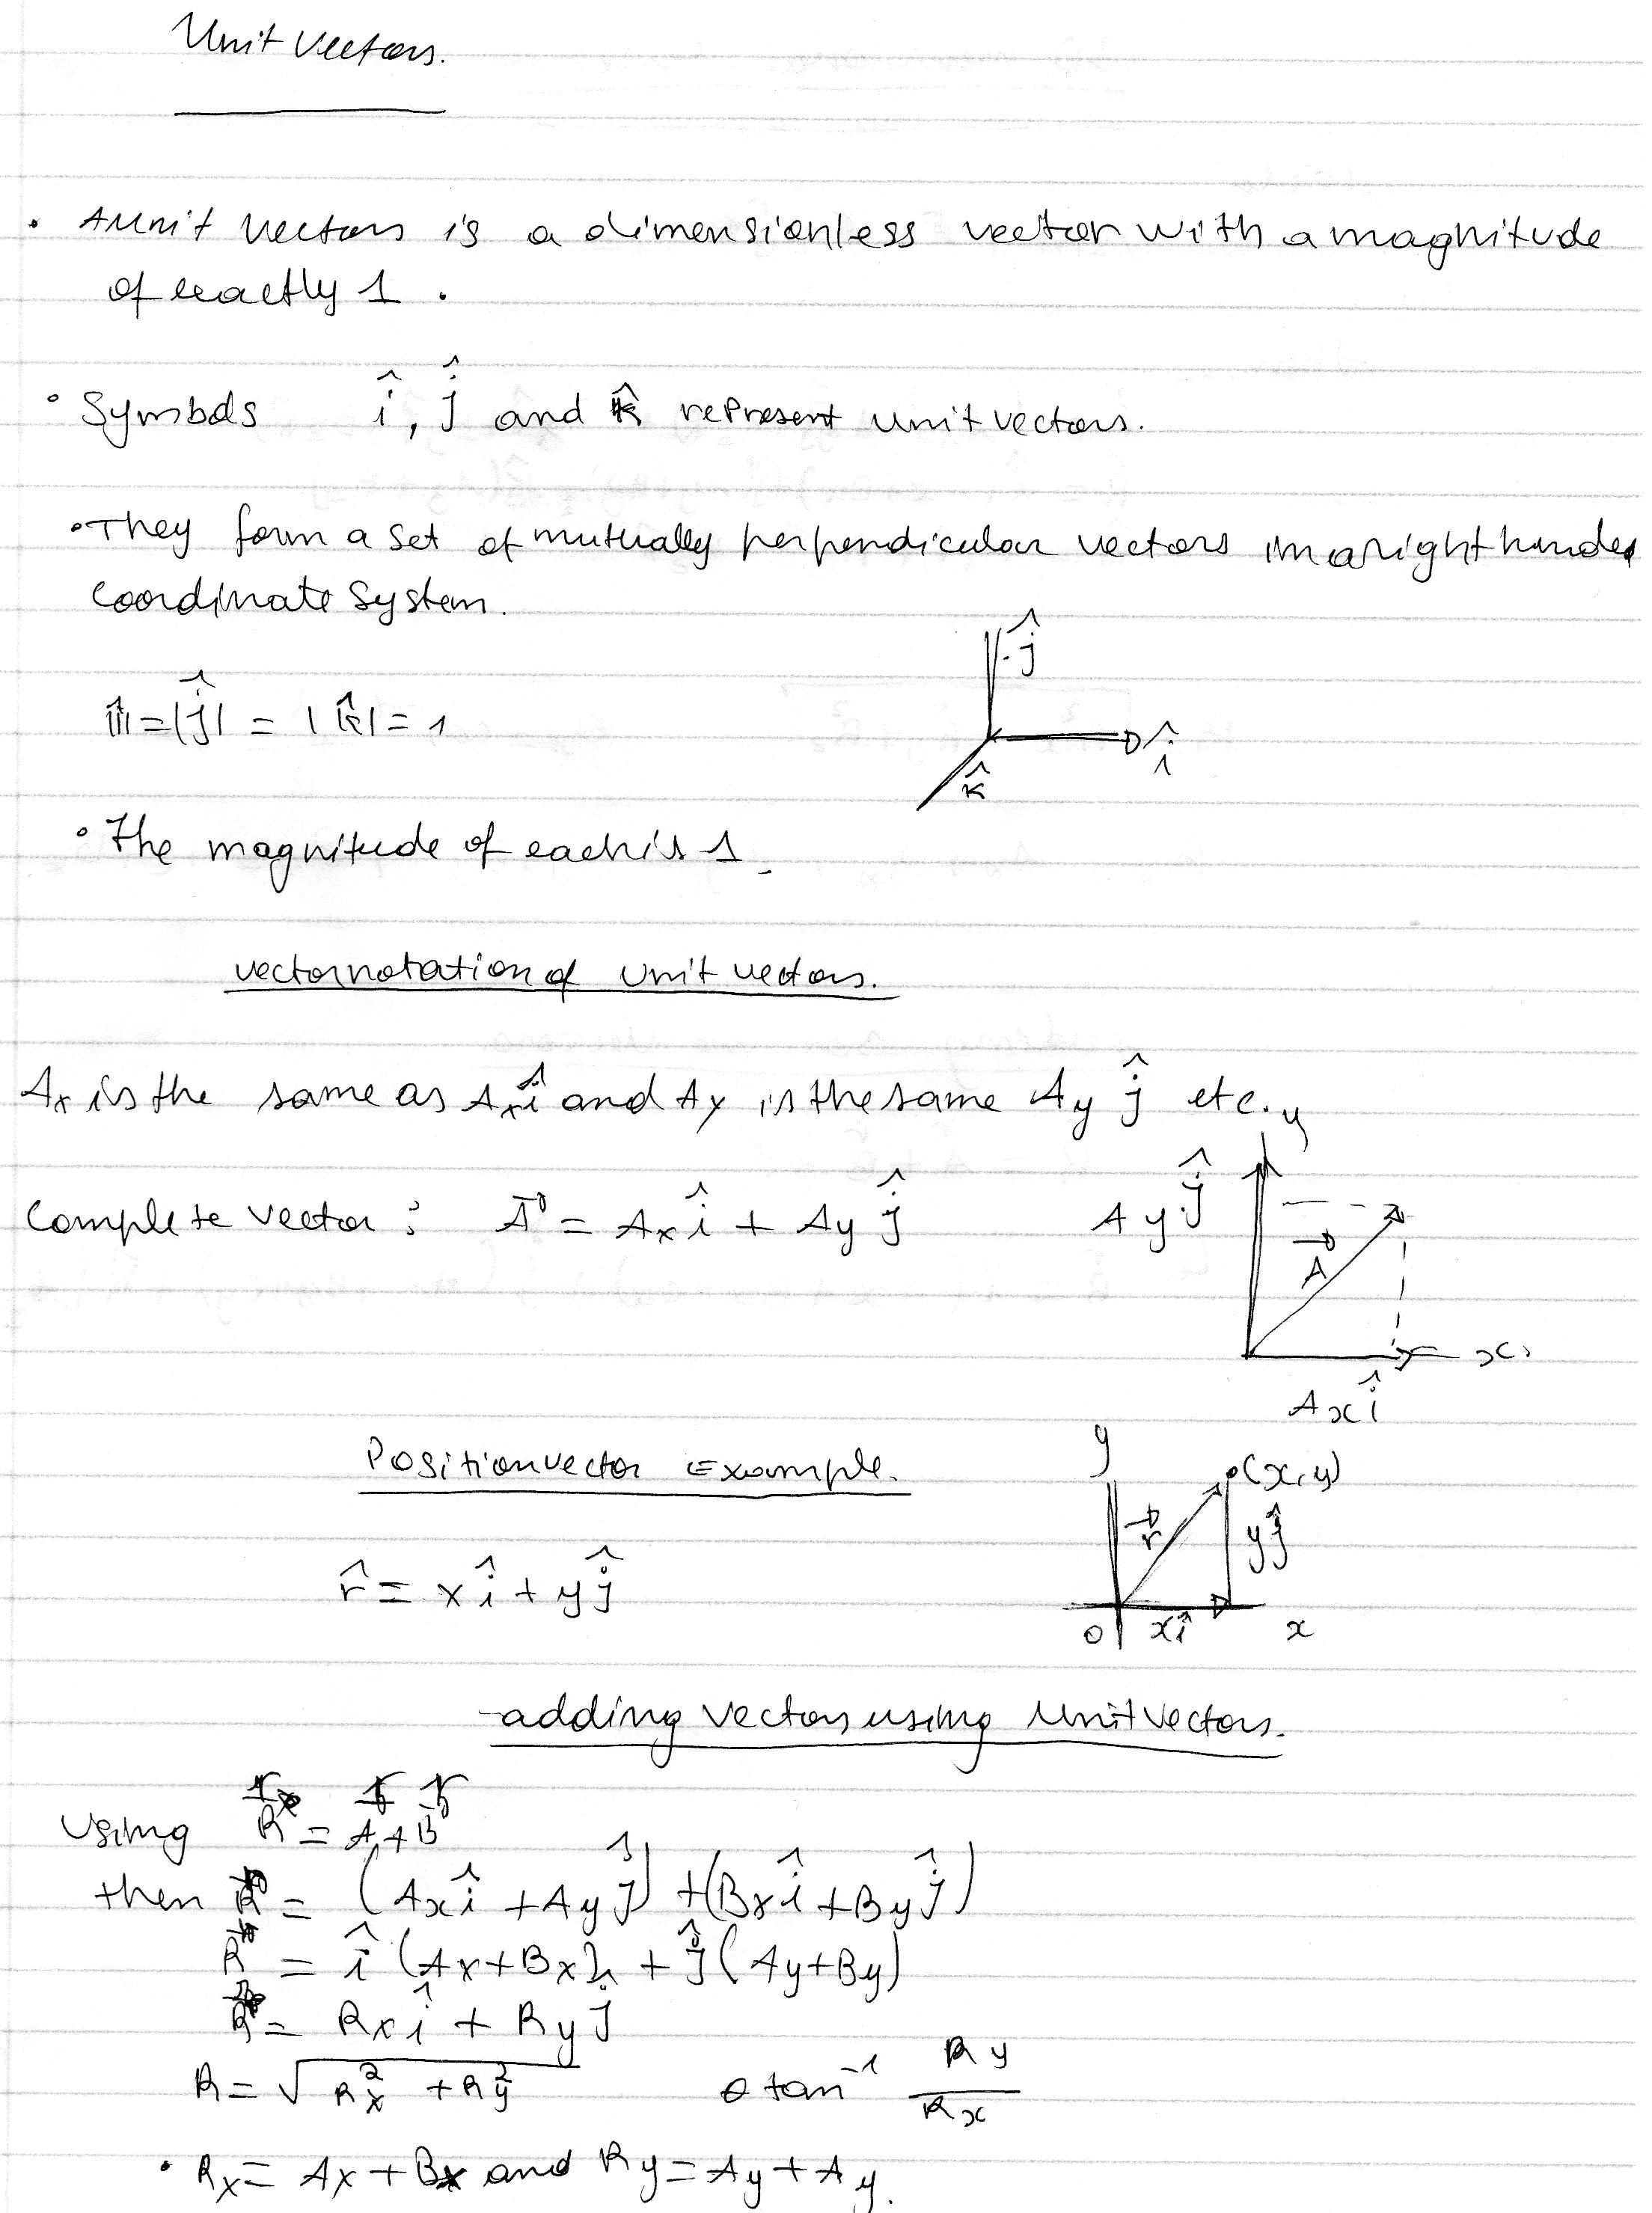 Unit vectors.
• A unit vectors is a dimensionless vector with a magnitude
of exactly 1.
• Symbols î, ĵ and k̂ represent unit vectors.
• They form a set of mutually perpendicular vectors in a right handed
coordinate system.
ĵ
|î| = |ĵ| = |k̂| = 1
î
k̂
• The magnitude of each is 1
vector notation of unit vectors.
Ax is the same as Ax î and Ay is the same Ay ĵ etc.
y
Complete vector : A⃗ = Ax î + Ay ĵ
Ay ĵ
A⃗
x
Ax î
Position vector Example.
y
(x,y)
r⃗
yĵ
r̂ = x î + y ĵ
O xî x
adding vectors using unit vectors.
Using R⃗ = A⃗ + B⃗
then R⃗ = (Ax î + Ay ĵ) + (Bx î + By ĵ)
R⃗ = î (Ax + Bx) + ĵ (Ay + By)
R⃗ = Rx î + Ry ĵ
R = √(Rx² + Ry²) θ tan⁻¹ Ry/Rx
• Rx = Ax + Bx and Ry = Ay + Ay.